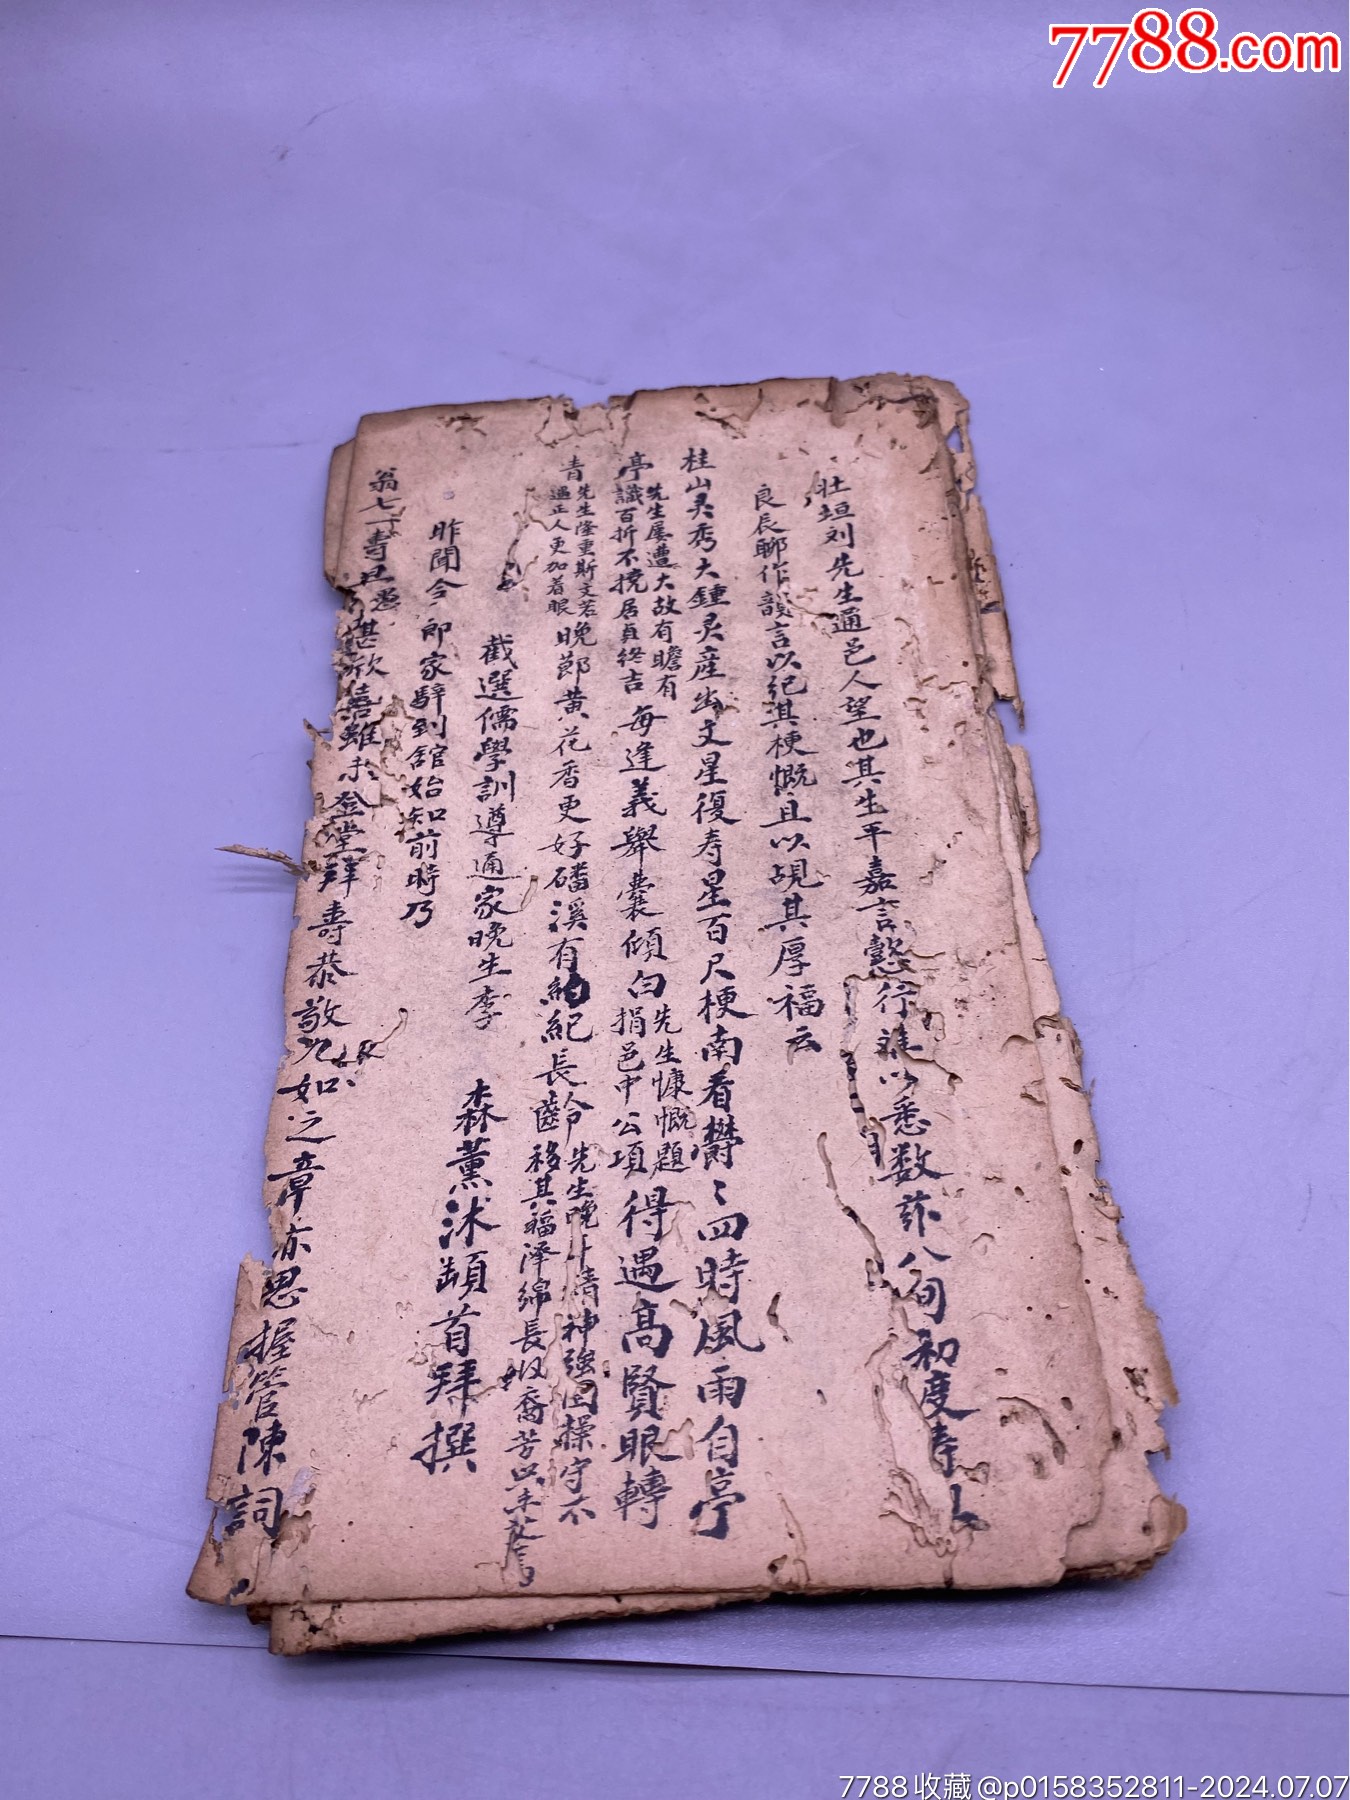 7788.com
壯垣刘先生通邑人望也其生平嘉言懿行難以悉数玆八旬初度壽
良辰聊作韻言以紀其梗慨且以覘其厚福云
桂山灵秀大鍾灵產出文星復寿星百尺梗南看欝〻四時風雨自亭
亭
先生屡遭大故有瞻有
識百折不撓居貞終吉
每逢義舉囊傾白
先生慷慨題
捐邑中公項
得遇高賢眼轉
青
先生隆重斯文若
遇正人更加着眼
晚莭黄花香更好磻溪有約紀長齡
先生晚年精神強固操守不
移其福澤綿長
截選儒學訓導通家晚生李 森薰沐頓首拜撰
昨聞令郎家驊到舘始知前時乃
翁七寿旦
堪欣喜雖未登堂拜壽恭敬九如之章亦思握管陳詞
7788收藏@p0158352811-2024.07.07